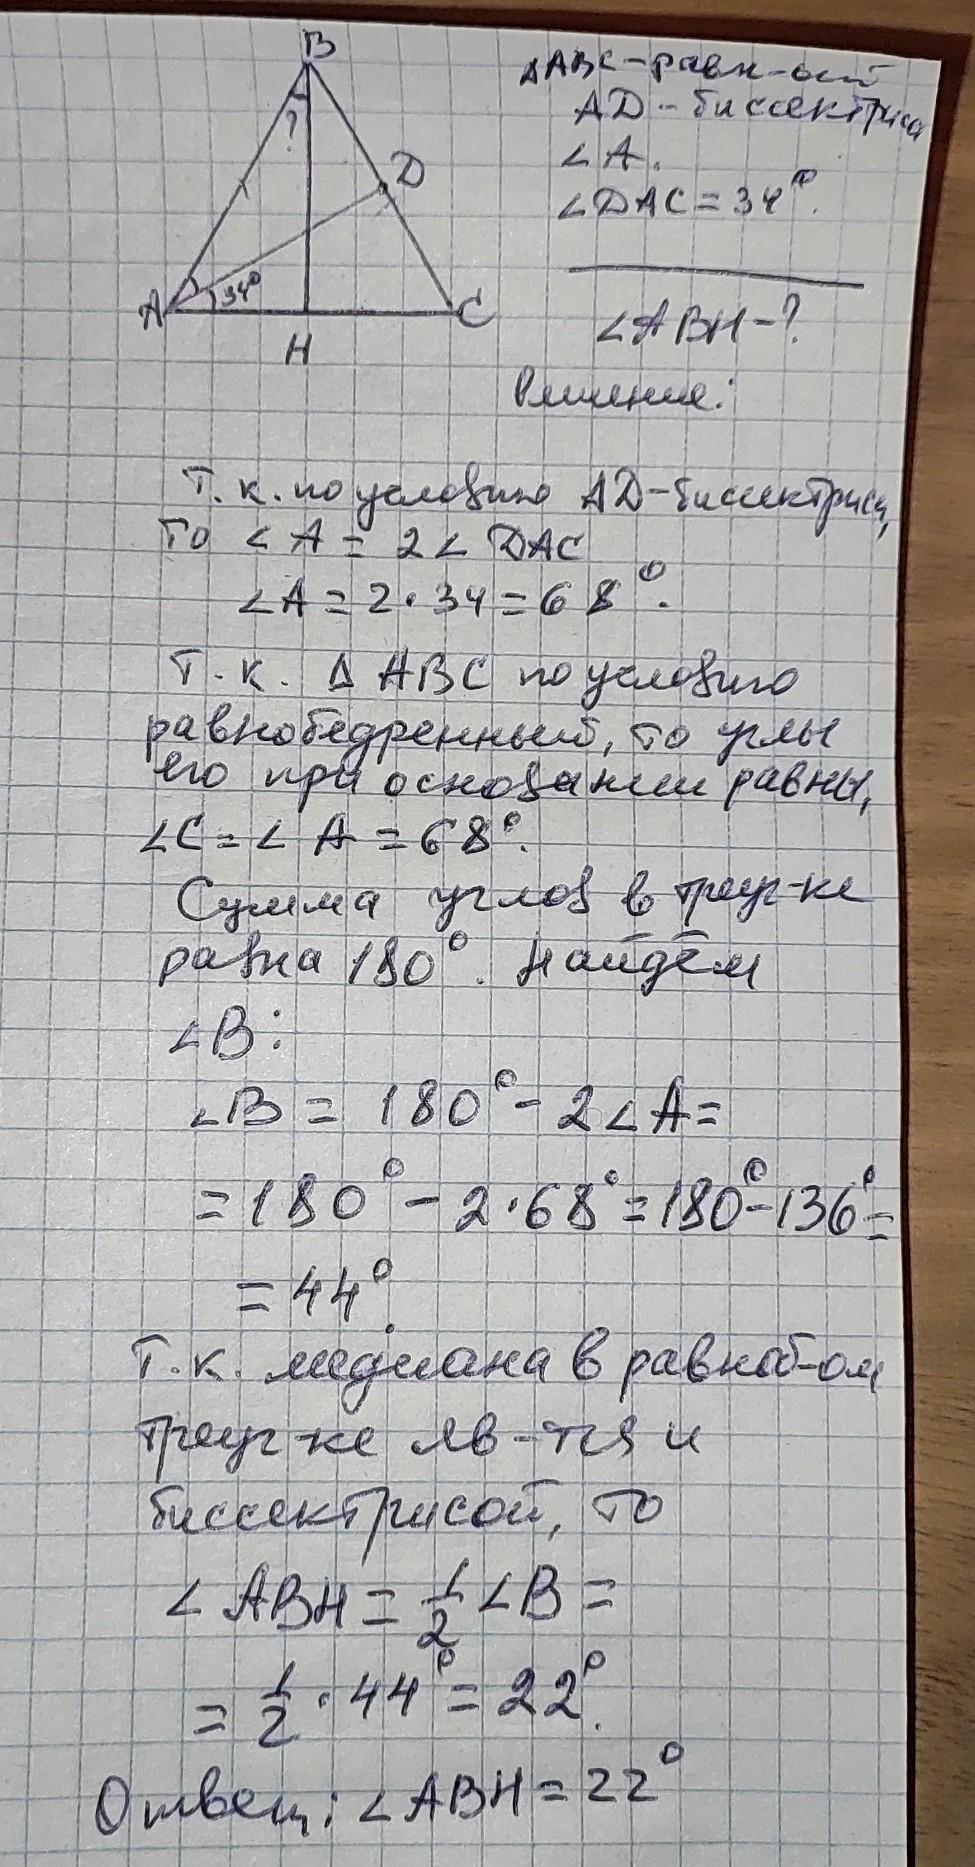 B
?
D
A
34°
C
H
△ABC-равн-ый
AD-биссектриса
∠A.
∠DAC=34°.
∠ABH-?
Решение:
Т.к. по условию AD-биссектриса,
то ∠A = 2∠DAC
∠A=2·34=68°.
Т.к. △ABC по условию
равнобедренный, то углы
его при основании равны,
∠C=∠A=68°.
Сумма углов в треуг-ке
равна 180°. Найдём
∠B:
∠B = 180°-2∠A=
=180°-2·68°=180°-136°=
=44°
Т.к. медиана в равноб-ом
треуг-ке яв-тся и
биссектрисой, то
∠ABH=1/2∠B=
=1/2·44°=22°.
Ответ: ∠ABH=22°